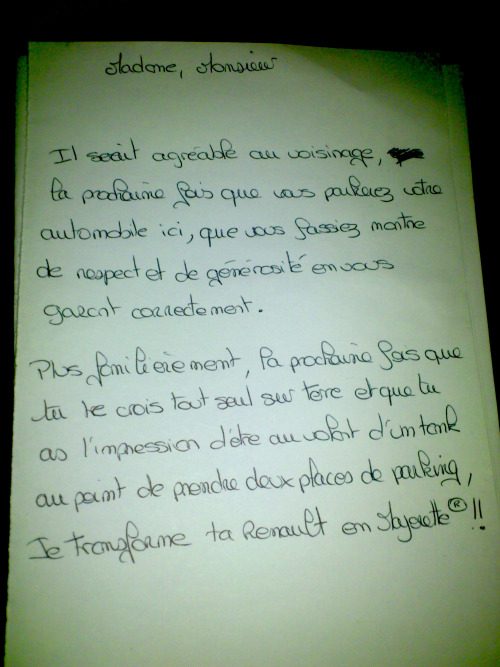 Madame, Monsieur
Il serait agréable au voisinage,
la prochaine fois que vous parkerez votre
automobile ici, que vous fassiez montre
de respect et de générosité en vous
garant correctement.
Plus familièrement, la prochaine fois que
tu te crois tout seul sur terre et que tu
as l'impression d'être au volant d'un tank
au point de prendre deux places de parking,
Je transforme ta Renault en Majorette®!!